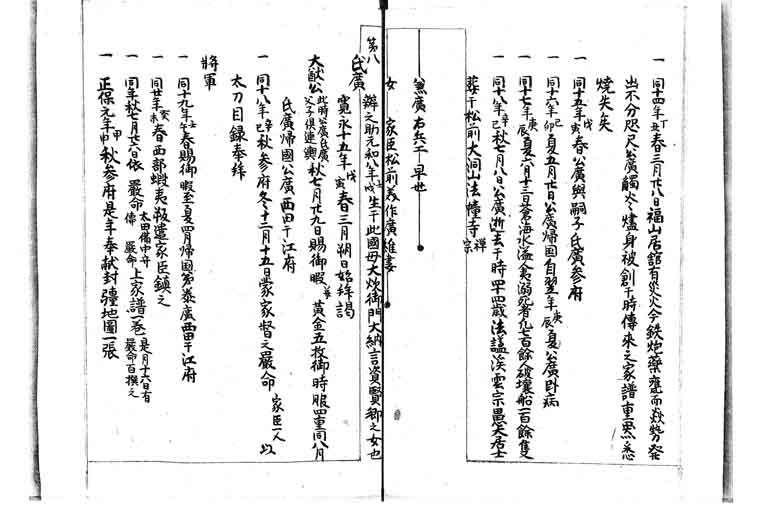 一 同十四年丁丑春三月廿八日福山居舘有災火今鉄炮藥甕而焱勢發
出不分咫尺公廣觸炎燼身被創于時傳來之家譜重器悉
燒失矣
一 同十五年戊寅春公廣與嗣子氏廣参府
一 同十六年己卯夏五月廿日公廣帰国自翌年庚辰夏公廣卧病
一 同十七年庚辰夏六月十三日蒼海水溢人夷溺死者凡七百餘人破壞船一百餘隻
一 同十八年辛巳秋七月八日公廣逝去于時四十四歳法謚渓雲宗愚大居士
葬于松前大洞山法幢寺禅宗
兼廣 右兵エ 早世
女 家臣松前美作廣維妻
第八
氏廣 辨之助元和八年壬戌生于此國母大炊御門大納言資賢卿之女也
寛永十五年戊寅春三月朔日始拜謁
大猷公此時公廣氏廣父子倶連輿秋七月廿九日賜御暇并黄金五枚御時服四重同八月
氏廣帰國公廣西田于江府
一 同十八年辛巳秋参府冬十二月十五日蒙家督之嚴命家臣一人以
太刀目録奉拜
將軍
一 同十九年壬午春賜御暇至夏四月帰國弟泰廣西田于江府
一 同廿年癸未春西部蝦夷叛遣家臣鎮之
一 同年秋七月廿六日依嚴命太田備中守傳嚴命上家譜一巻是月十六日有嚴命百撰之
一 正保元年甲申秋参府是年奉献封彊地圖一張